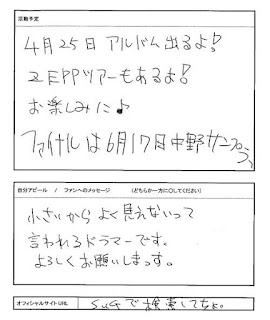 活動予定
4月25日 アルバム出るよ!
ZEPPツアーもあるよ!
お楽しみに♪
ファイナルは6月17日中野サンプラ
自分アピール / ファンへのメッセージ (どちらか一方に○してください)
小さいからよく見えないって
言われるドラマーです。
よろしくお願いしまっす。
オフィシャルサイトURL
SuGで検索してちょ。